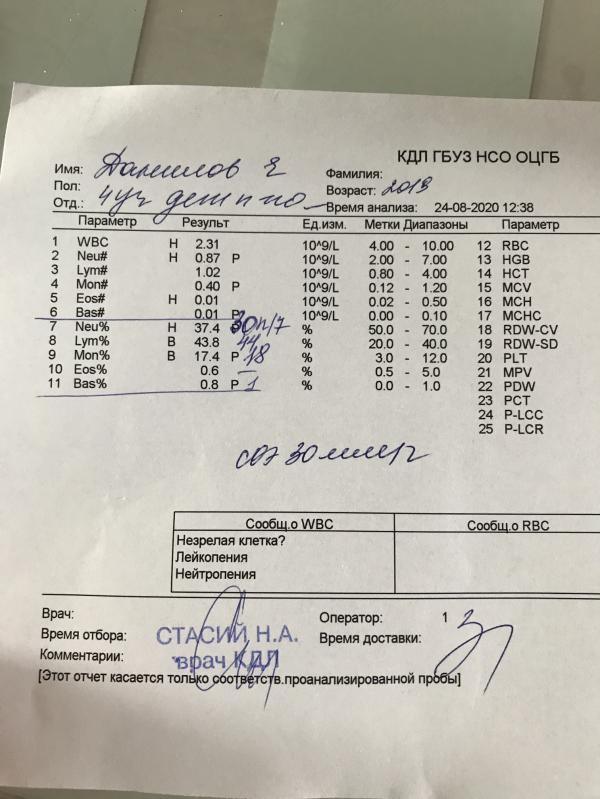 КДЛ ГБУЗ НСО ОЦГБ
Имя: Данилов Е Фамилия:
Пол: Возраст: 2013
Отд.: 4уч дет п-ка Время анализа: 24-08-2020 12:38
Параметр Результ Ед.изм. Метки Диапазоны Параметр
1 WBC Н 2.31 10^9/L 4.00 - 10.00 12 RBC
2 Neu# Н 0.87 Р 10^9/L 2.00 - 7.00 13 HGB
3 Lym# 1.02 10^9/L 0.80 - 4.00 14 HCT
4 Mon# 0.40 Р 10^9/L 0.12 - 1.20 15 MCV
5 Eos# Н 0.01 10^9/L 0.02 - 0.50 16 MCH
6 Bas# 0.01 Р 10^9/L 0.00 - 0.10 17 MCHC
7 Neu% Н 37.4 30п/7 % 50.0 - 70.0 18 RDW-CV
8 Lym% В 43.8 44 % 20.0 - 40.0 19 RDW-SD
9 Mon% В 17.4 Р 18 % 3.0 - 12.0 20 PLT
10 Eos% 0.6 — % 0.5 - 5.0 21 MPV
11 Bas% 0.8 Р 1 % 0.0 - 1.0 22 PDW
23 PCT
24 P-LCC
25 P-LCR
соэ 30 мм/ч
Сообщ.о WBC Сообщ.о RBC
Незрелая клетка?
Лейкопения
Нейтропения
Врач: Оператор: 1
Время отбора: СТАСИЙ Н.А. Время доставки:
Комментарии: врач КДЛ
[Этот отчет касается только соответств.проанализированной пробы]